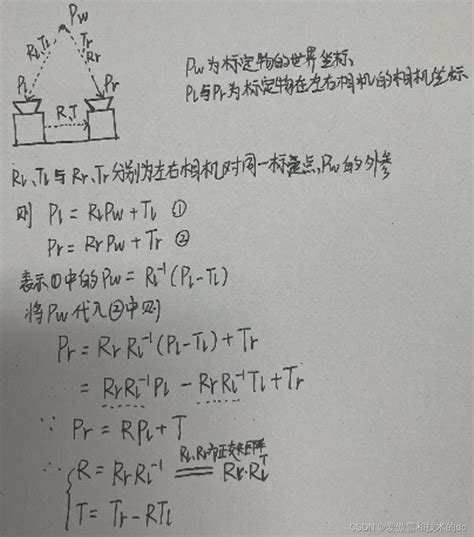 Pw
Rl,Tl
Tr
Rr
Pl
Pr
R,T
Pw为标定物的世界坐标,
Pl与Pr为标定物在左右相机的相机坐标
Rl、Tl与Rr、Tr分别为左右相机对同一标定点,Pw的外参
则 Pl = RlPw + Tl ①
Pr = RrPw + Tr ②
表示①中的Pw = Rl⁻¹(Pl-Tl)
将Pw代入②中则
Pr = RrRl⁻¹(Pl-Tl) + Tr
= RrRl⁻¹Pl - RrRl⁻¹Tl + Tr
∵ Pr = RPl + T
Rl、Rr都正交矩阵
∴ { R = RrRl⁻¹ = Rr·Rlᵀ
T = Tr - RTl
CSDN @爱做菜和技术的dc